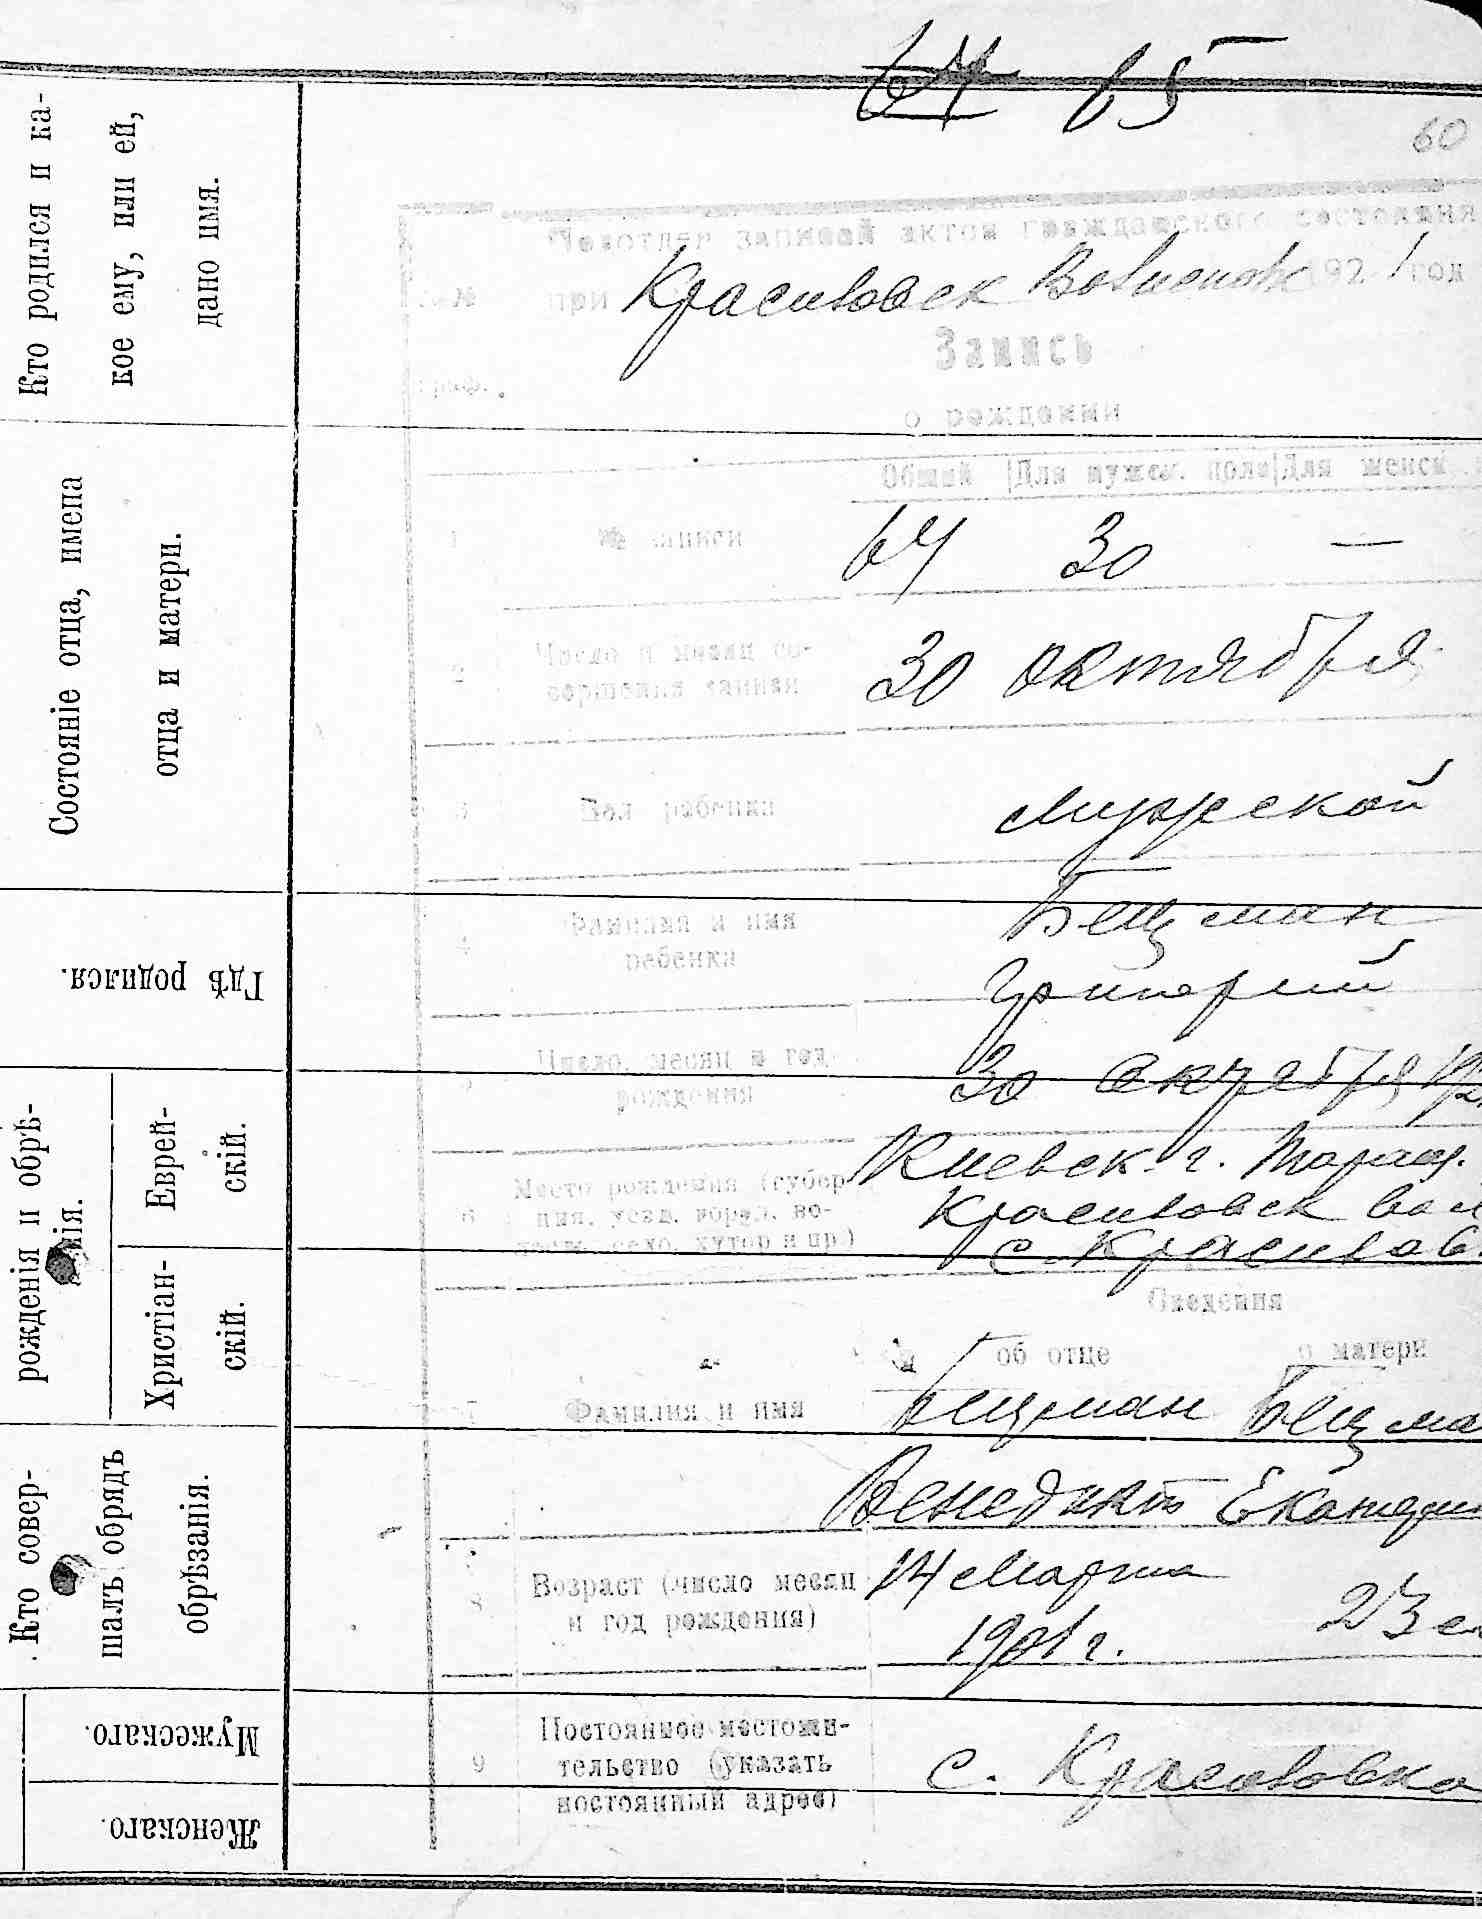 Кто родился и ка-
кое ему, или ей,
дано имя.
Состояніе отца, имена
отца и матери.
Гдѣ родился.
рожденія и обрѣ-
нія.
Еврей-
скій.
Христіан-
скій.
Кто совер-
шалъ обрядъ
обрѣзанія.
Мужескаго.
Женскаго.
64 65
60
записей актов гражданского состояния
№ при 192 1 год
Запись
граф.
о рождении
Общий Для мужск. пола Для женск
1 № записи 64 30 —
2 Число и месяц со-
вершения записи 30 октября
3 Пол ребенка мужской
4 Фамилия и имя
ребенка
Бецман
Григорий
5 Число, месяц и год
рождения 30 октября 192
6 Место рождения (губер
ния, уезд, город, во-
лость, село, хутор и пр.)
Киевск. г. Таращ.
вол
с.
Сведения
об отце о матери
7 Фамилия и имя Бецман Бецма
Венедикт Екатерин
8 Возраст (число месяц
и год рождения)
14 Марта
1901 г. 23
9 Постоянное местожи-
тельство (указать
постоянный адрес)
с.